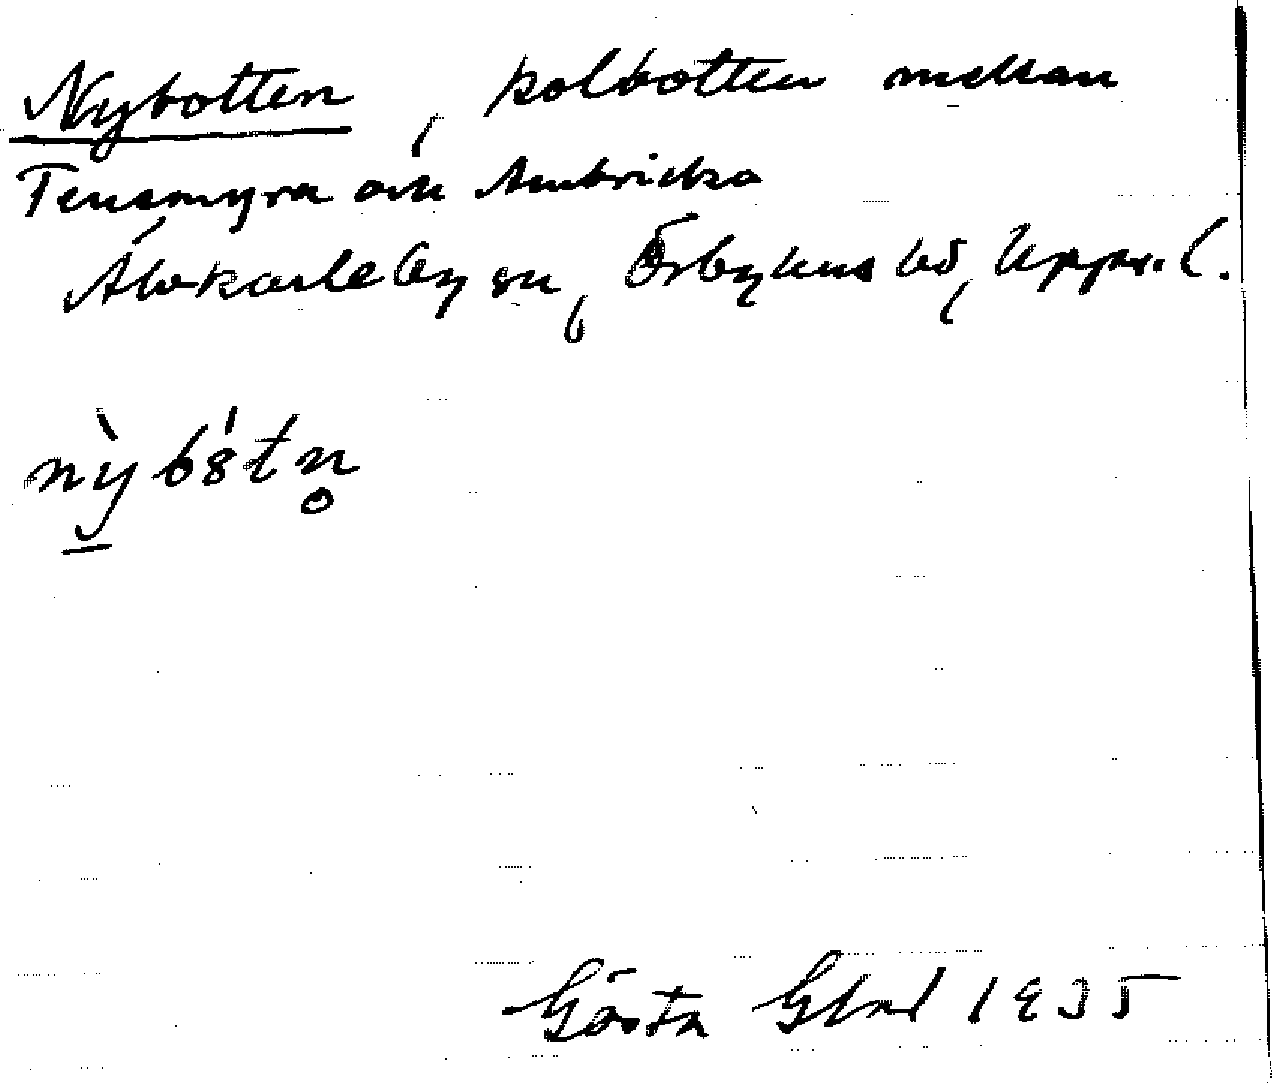 Nybotten, kolbotten mellan
Tensmyra och Ambricka
Älvkarleby sn, Örbyhus hd, Upps. l.
nỳb8́tn̥
Gösta 1935